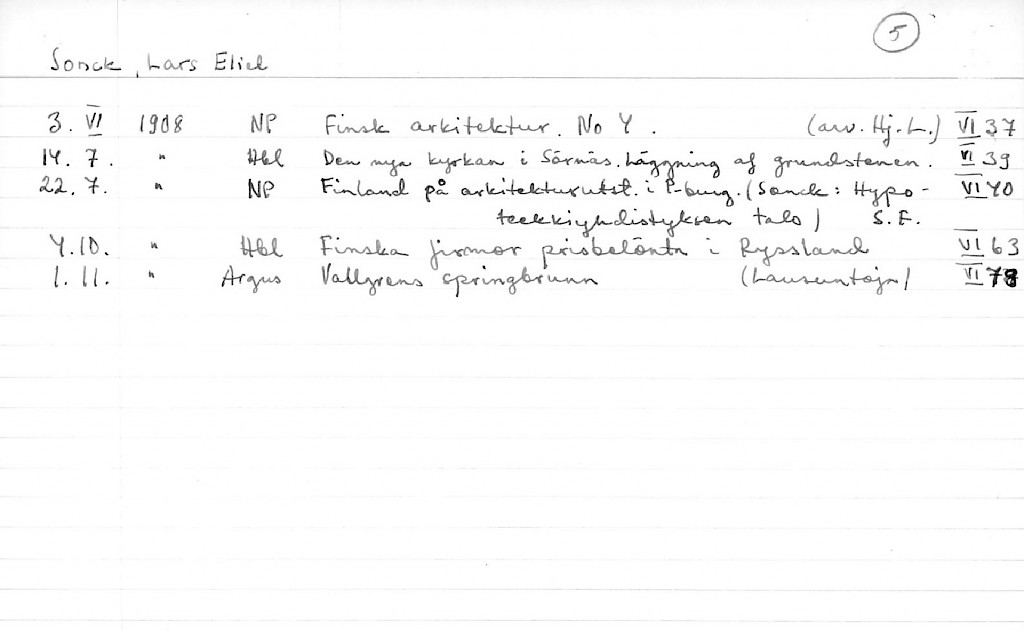 5
Sonck, Lars Eliel
3. VI 1908 NP Finsk arkitektur. No 4. (arv. Hj. L.) VI 37
14. 7. " Hbl Den nya kyrkan i Sörnäs. Läggning af grundstenen. VI 39
22. 7. " NP Finland på arkitekturutst. i P-burg. (Sonck: Hypo- VI 40
teekkiyhdistyksen talo) S. F.
4.10. " Hbl Finska firmor prisbelönta i Ryssland VI 63
1. 11. " Argus Vallgrens springbrunn (Lausuntoja) VI 78